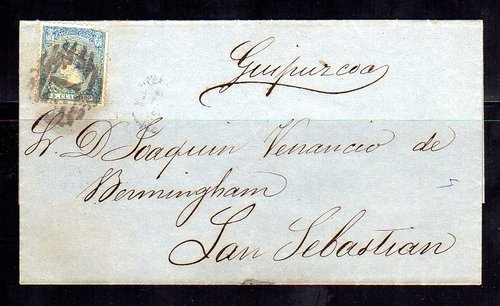 Guipuzcoa
Sr. D Joaquin Venancio de
Bermingham
San Sebastian